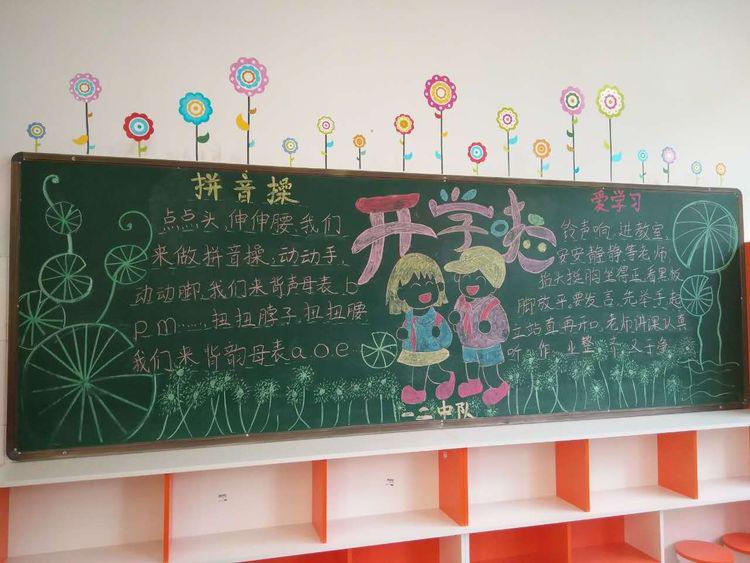 拼音操
点点头,伸伸腰,我们
来做拼音操,动动手,
动动脚,我们来背声母表 b
p m……,扭扭脖子,扭扭腰
我们来背韵母表 a o e
开学啦
一二中队
爱学习
铃声响,进教室,
安安静静等老师
抬头挺胸坐得正看黑板
脚放平,要发言,先举手起
立站直再开口,老师讲课认真
听,作业整齐又干净